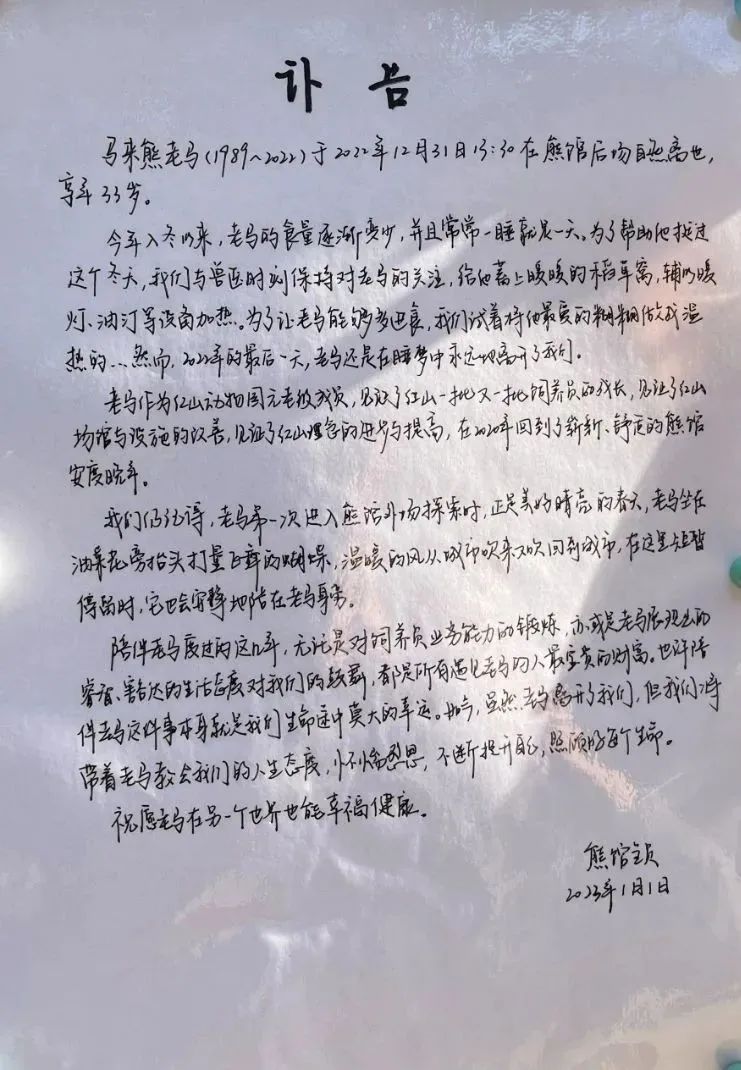 讣告
马来熊老马(1989~2022)于2022年12月31日13:30在熊馆后场自然离世,
享年33岁。
今年入冬以来,老马的食量逐渐变少,并且常常一睡就是一天。为了帮助他挺过
这个冬天,我们与兽医时刻保持对老马的关注,给他蓄上暖暖的稻草窝,辅以暖
灯、油汀等设备加热。为了让老马能够多进食,我们试着将他最爱的糊糊做成温
热的...然而,2022年的最后一天,老马还是在睡梦中永远地离开了我们。
老马作为红山动物园元老级成员,见证了红山一批又一批饲养员的成长,见证了红山
场馆与设施的改善,见证了红山理念的进步与提高,在2020年回到了崭新、舒适的熊馆
安度晚年。
我们仍记得,老马第一次进入熊馆外场探索时,正是美好晴亮的春天,老马坐在
油菜花旁抬头打量飞舞的蝴蝶,温暖的风从城市吹来又吹回到城市,在这里短暂
停留时,它也会安静地陪在老马身旁。
陪伴老马度过的这几年,无论是对饲养员业务能力的锻炼,亦或是老马展现出的
睿智、豁达的生活态度对我们的鼓舞,都是所有遇见老马的人最宝贵的财富。也许陪
伴老马这件事本身就是我们生命途中莫大的幸运。如今,虽然老马离开了我们,但我们将
带着老马教会我们的人生态度,怀念思,不断提升自己,照顾好每个生命。
祝愿老马在另一个世界也能幸福健康。
熊馆全员
2023年1月1日